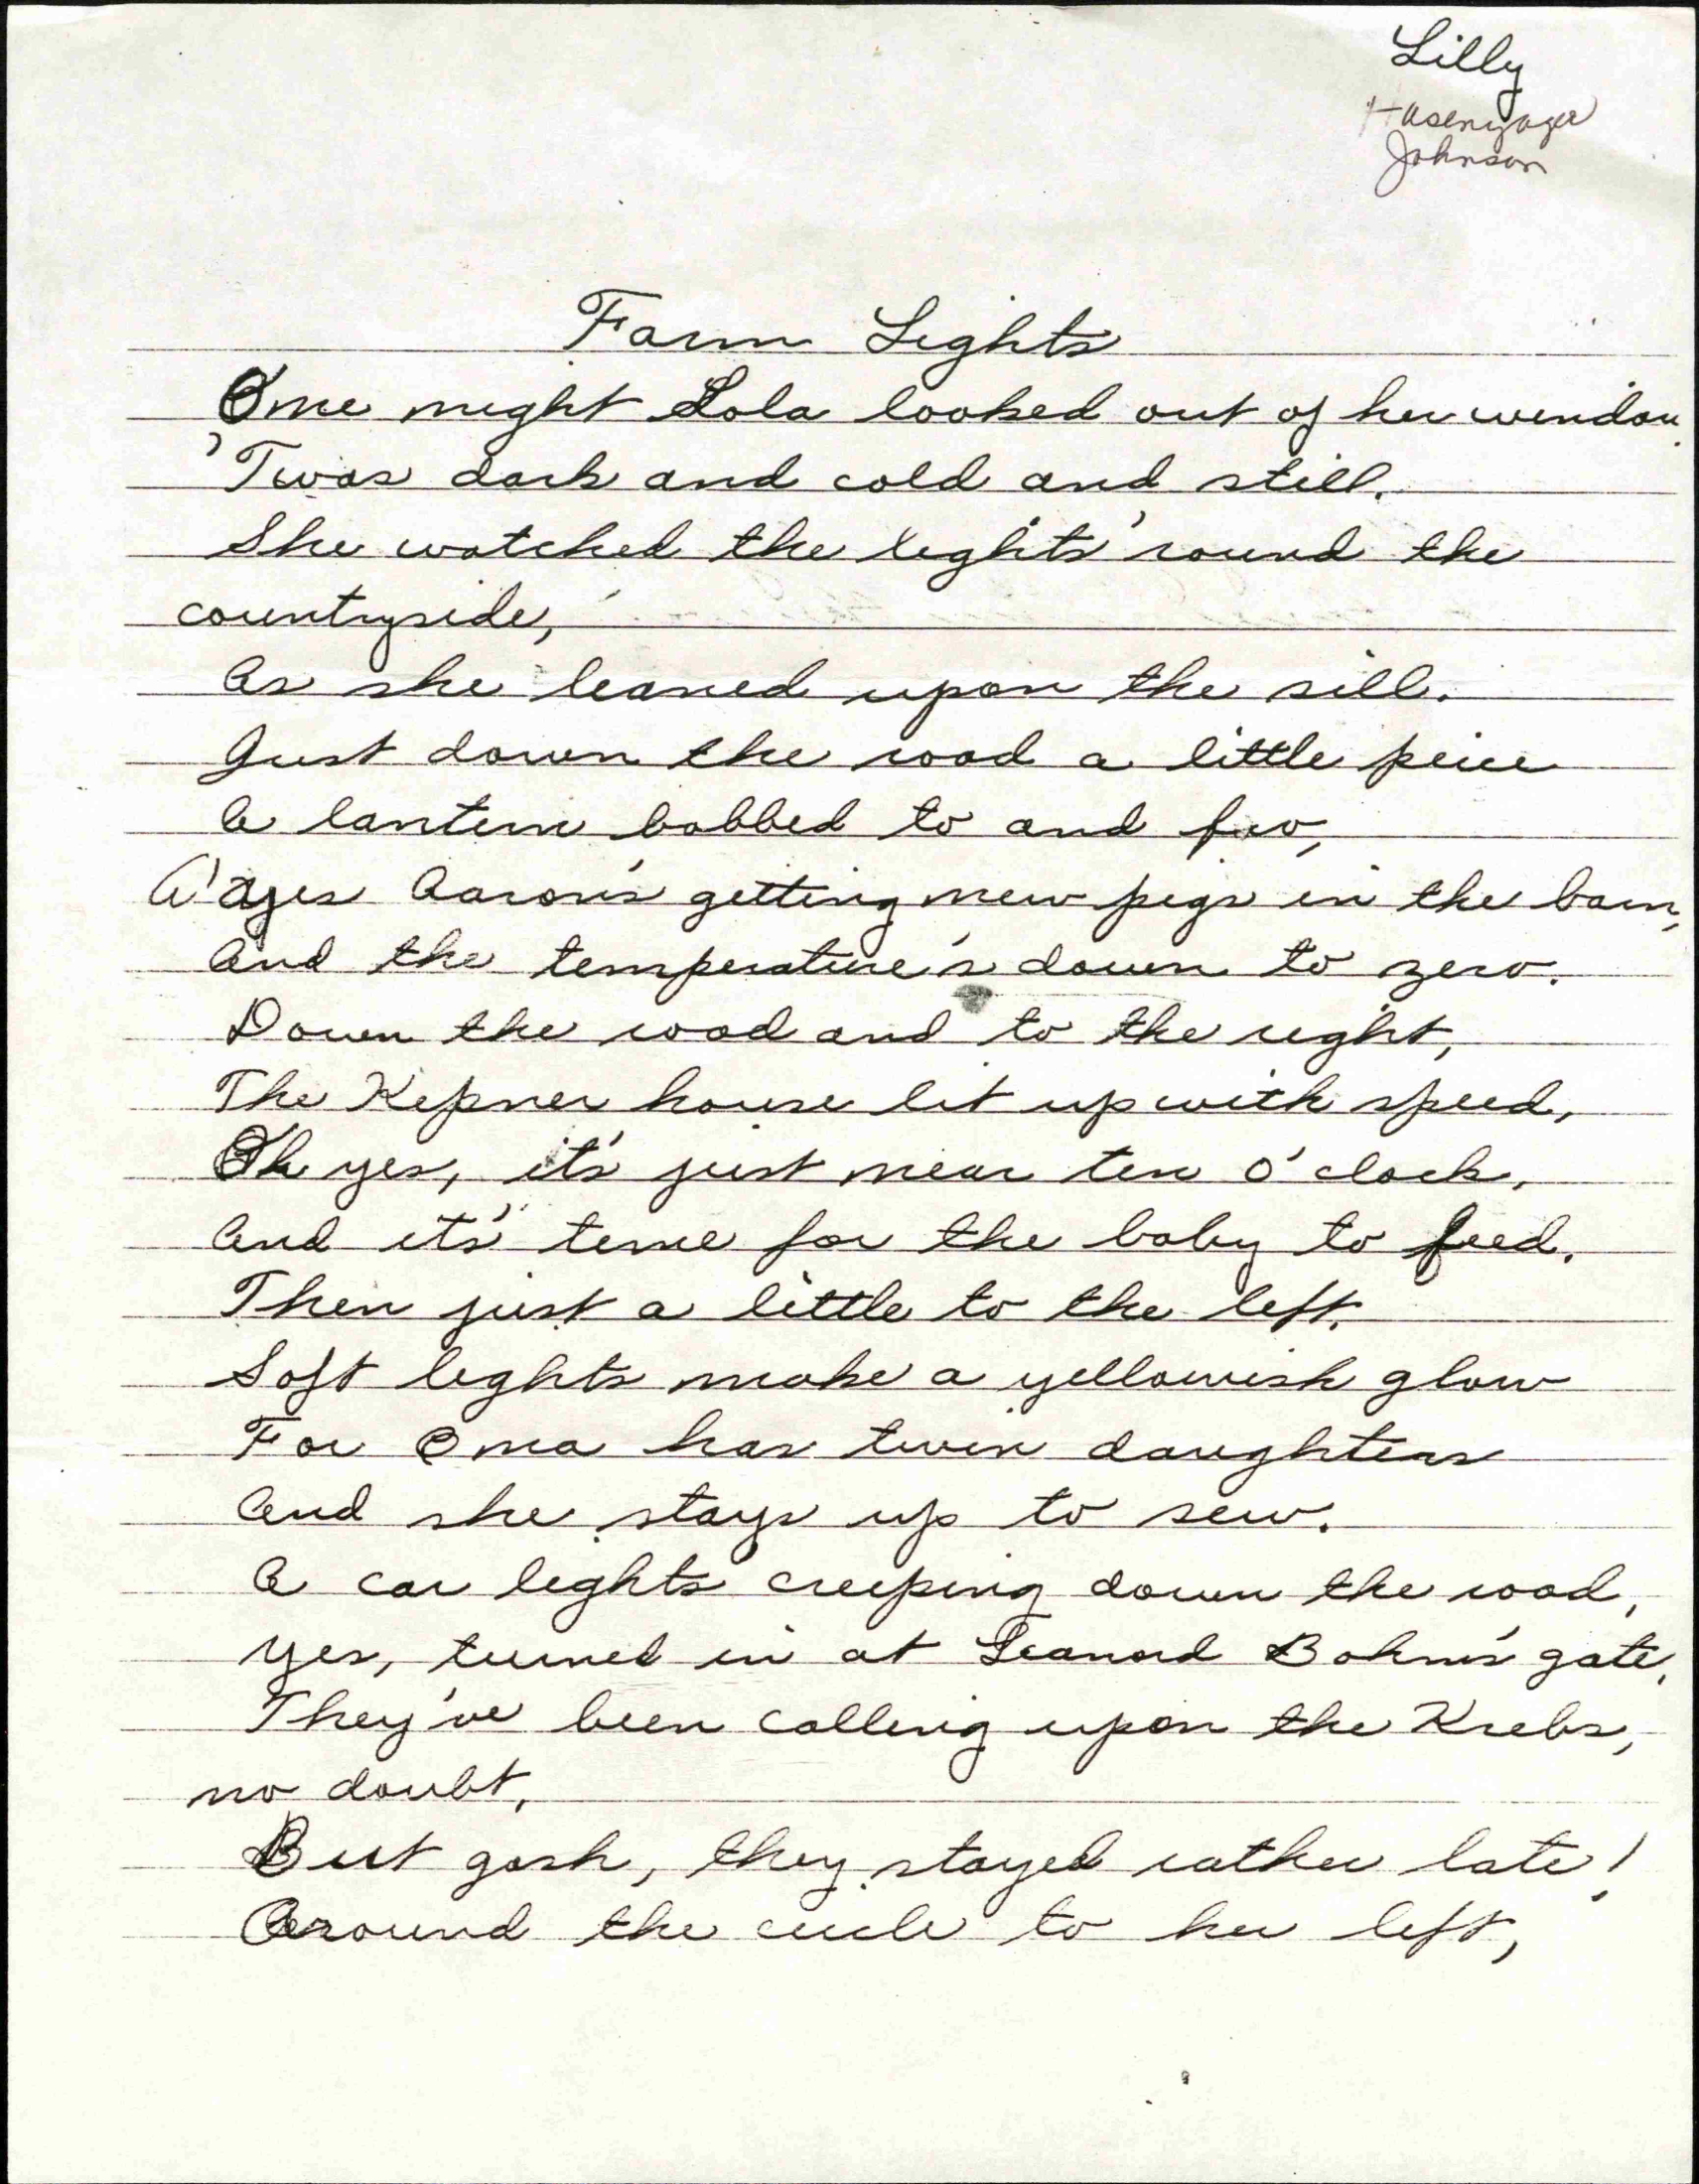 Lilly
Hasenyager
Johnson
Farm Lights
One night Lola looked out of her window.
'Twas dark and cold and still.
She watched the lights 'round the
countryside,
As she leaned upon the sill.
Just down the road a little peice
A lantern bobbed to and fro,
Aaron's getting new pigs in the barn,
And the temperature's down to zero.
Down the road and to the right,
The Kepner house lit up with speed,
Oh yes, it's just near ten o'clock,
And it's time for the baby to feed.
Then just a little to the left,
Soft lights make a yellowish glow
For Oma has twin daughters
And she stays up to sew.
A car lights creeping down the road,
Yes, turned in at Leanord Bohm's gate,
They've been calling upon the Krebs,
no doubt,
But gosh, they stayed rather late!
Around the circle to her left,